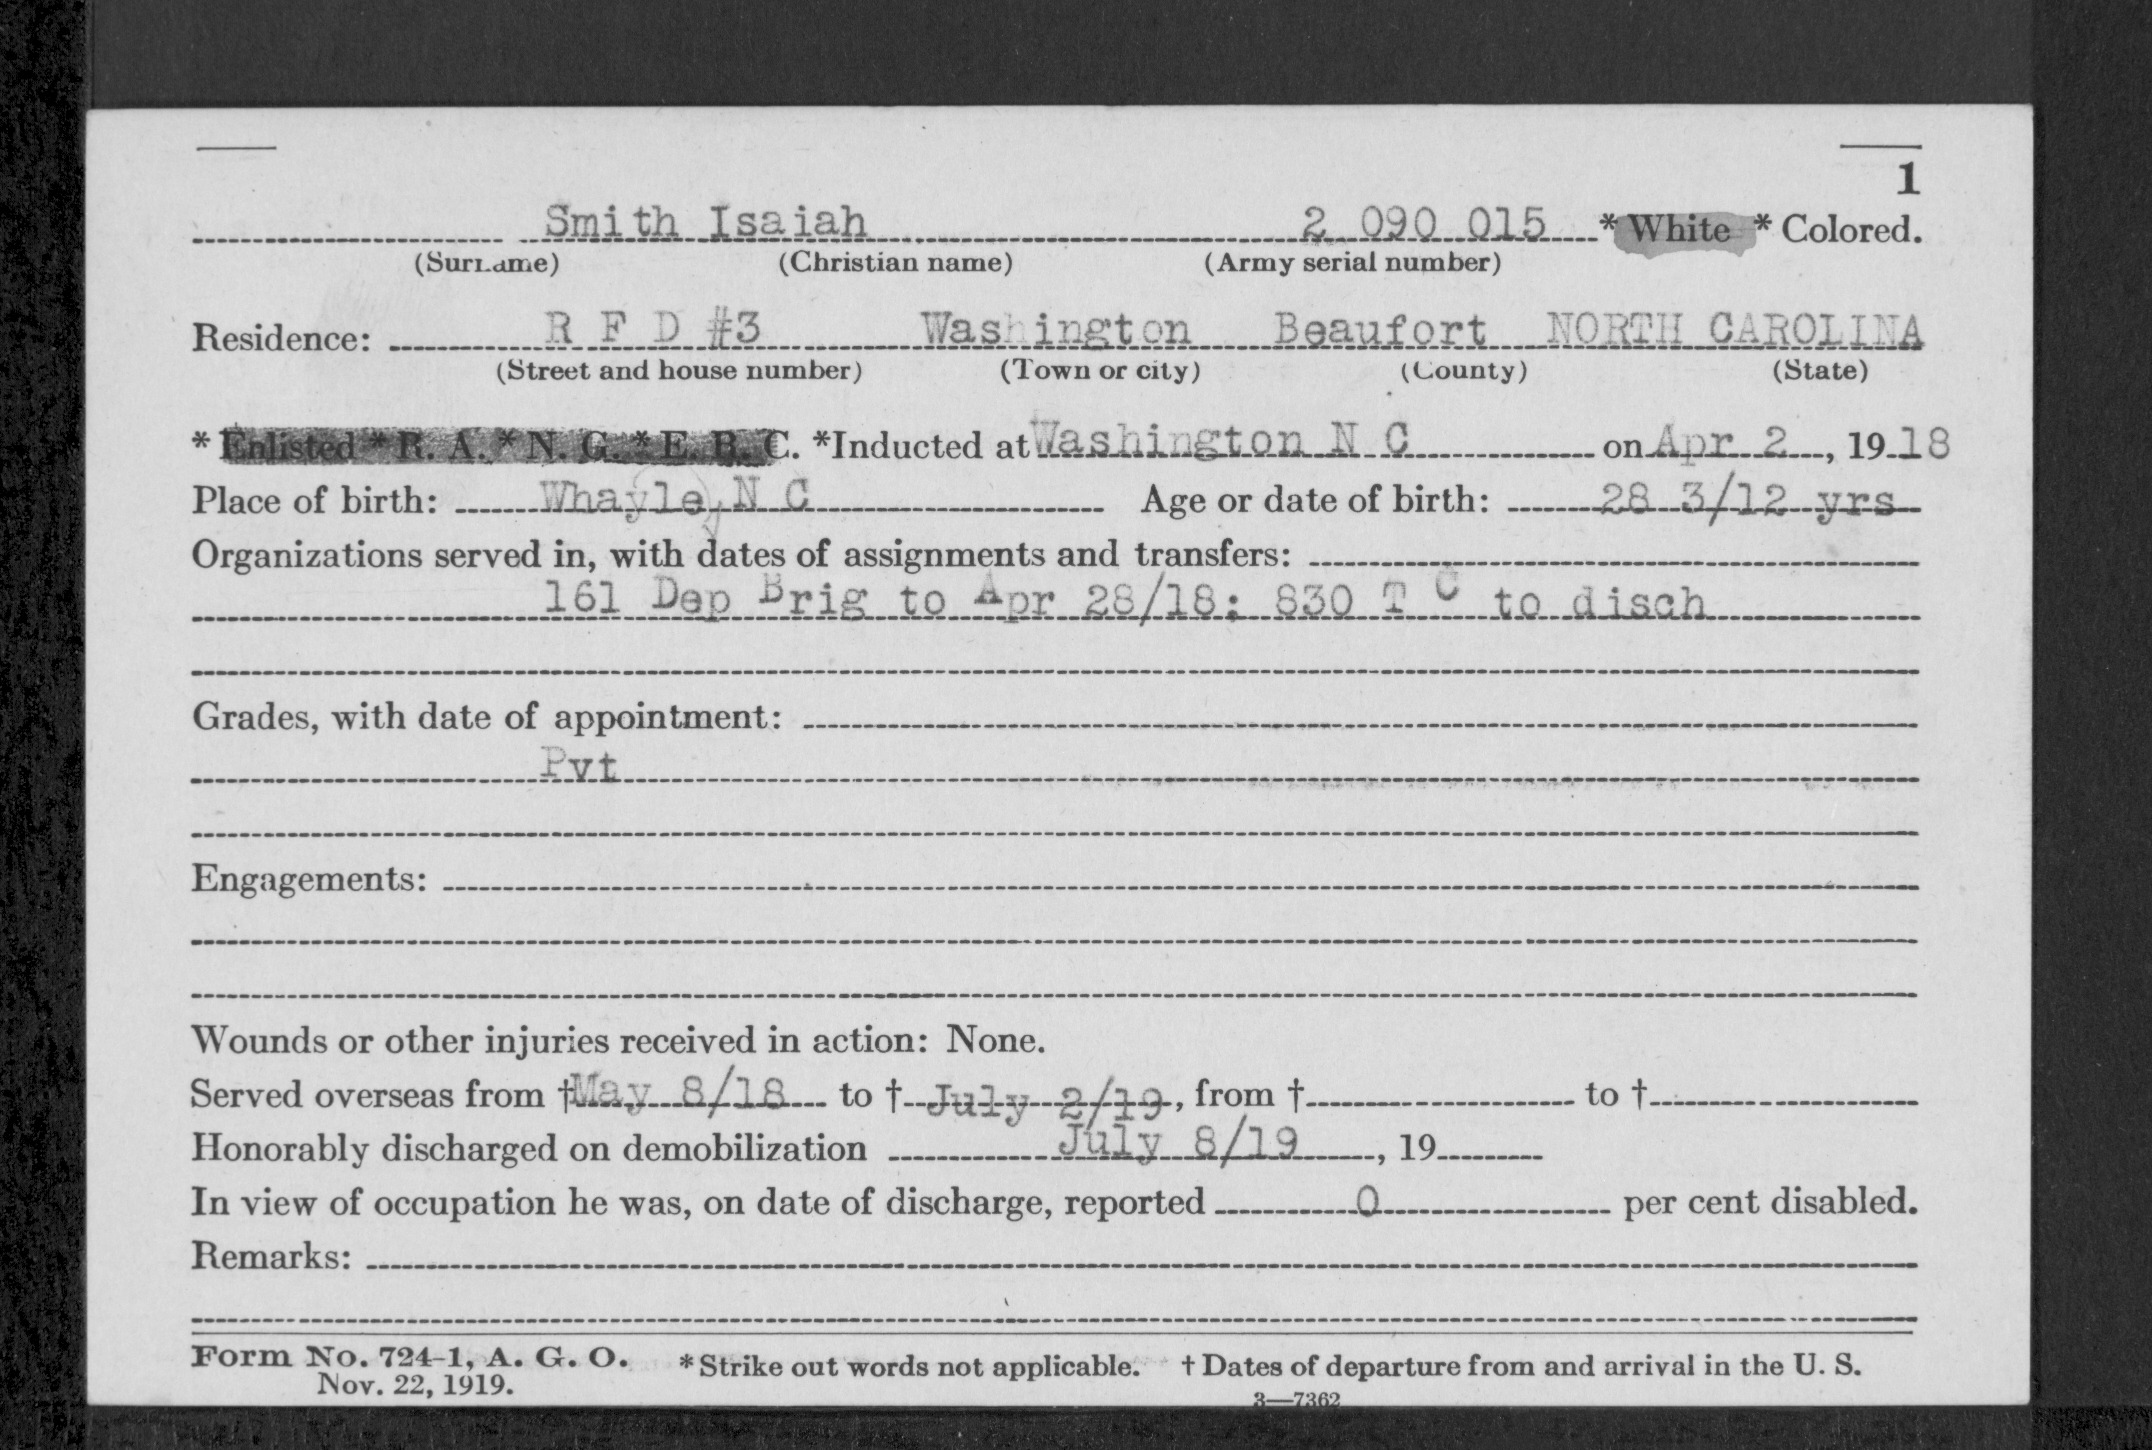 1
Smith Isaiah 2 090 015 * White * Colored.
(Surname) (Christian name) (Army serial number)
Residence: R F D #3 Washington Beaufort NORTH CAROLINA
(Street and house number) (Town or city) (County) (State)
* Enlisted * R. A. * N. G. * E. R. C. *Inducted at Washington N C on Apr 2, 1918
Place of birth: Whayle, N C Age or date of birth: 28 3/12 yrs
Organizations served in, with dates of assignments and transfers:
161 Dep Brig to Apr 28/18; 830 T C to disch
Grades, with date of appointment:
Pvt
Engagements:
Wounds or other injuries received in action: None.
Served overseas from †May 8/18 to † July 2/19, from † to †
Honorably discharged on demobilization July 8/19, 19
In view of occupation he was, on date of discharge, reported 0 per cent disabled.
Remarks:
Form No. 724-1, A. G. O. *Strike out words not applicable. † Dates of departure from and arrival in the U. S.
Nov. 22, 1919.
3—7362